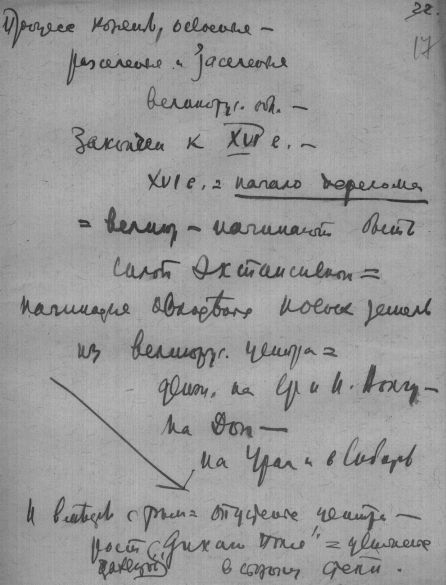 22.
17
Процесс колониз, освоения –
расселения и заселения
великорус. обл. –
Закончен к XVI в. –
XVI в. = начало перелома
= велик – начинают быть
силой экспансивной =
начинается овладение новых земель
из великорус. центра =
движ. на Ср и Н. Волгу –
на Дон –
на Урал и в Сибирь
И вместе с тем опустение центра –
рост "Дикого поля" =
в сторону степи.